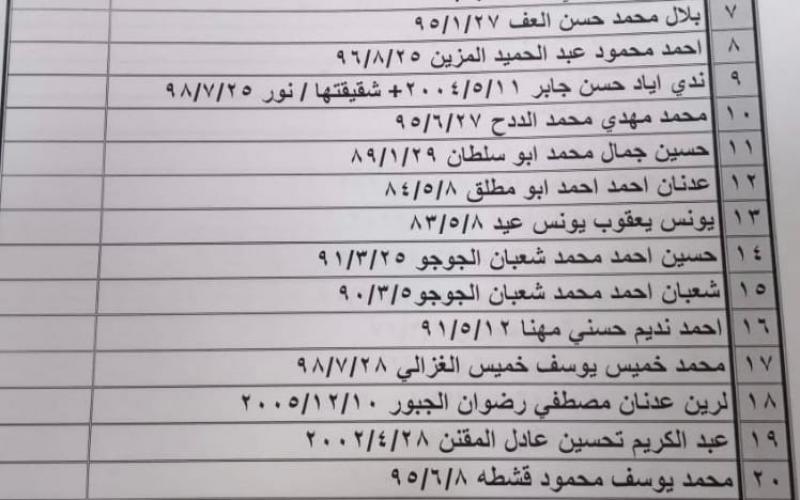 ٧ بلال محمد حسن العف ٩٥/١/٢٧
٨ احمد محمود عبد الحميد المزين ٩٦/٨/٢٥
٩ ندي اياد حسن جابر ٢٠٠٤/٥/١١+ شقيقتها / نور ٩٨/٧/٢٥
١٠ محمد مهدي محمد الددح ٩٥/٦/٢٧
١١ حسين جمال محمد ابو سلطان ٨٩/١/٢٩
١٢ عدنان احمد احمد ابو مطلق ٨٤/٥/٨
١٣ يونس يعقوب يونس عيد ٨٣/٥/٨
١٤ حسين احمد محمد شعبان الجوجو ٩١/٣/٢٥
١٥ شعبان احمد محمد شعبان الجوجو٩٠/٣/٥
١٦ احمد نديم حسني مهنا ٩١/٥/١٢
١٧ محمد خميس يوسف خميس الغزالي ٩٨/٧/٢٨
١٨ لرين عدنان مصطفي رضوان الجبور ٢٠٠٥/١٢/١٠
١٩ عبد الكريم تحسين عادل المقنن ٢٠٠٢/٤/٢٨
٢٠ محمد يوسف محمود قشطه ٩٥/٦/٨